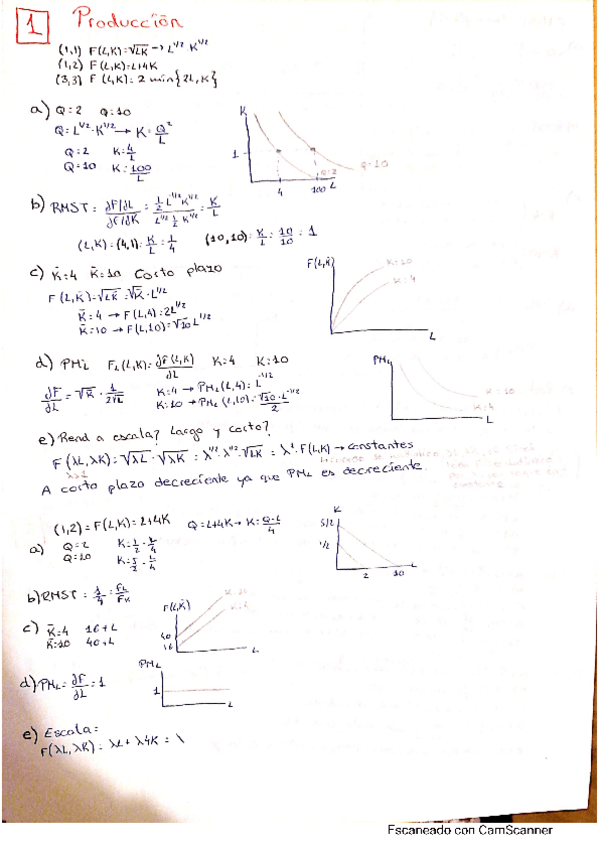 1 Producción
(1,1) F(L,K)=√LK → L^1/2 K^1/2
(1,2) F(L,K)=L+4K
(3,3) F(L,K)= 2 min{2L,K}
a) Q=2 Q=10
Q=L^1/2·K^1/2 → K=Q²/L
Q=2 K=4/L
Q=10 K=100/L
K
1
4 100 L
Q=2
Q=10
b) RMST = (∂F/∂L)/(∂F/∂K) = = K/L
(L,K)=(4,1): K/L=1/4 (10,10): K/L = 10/10 = 1
c) K̄=4 K̄=10 Corto plazo
F(L,K̄)=√LK̄=√K̄·L^1/2
K̄=4 → F(L,4)=2L^1/2
K̄=10 → F(L,10)=√10 L^1/2
F(L,K̄)
K=10
K=4
L
d) PML F_L(L,K)= ∂F(L,K)/∂L K=4 K=10
∂F/∂L = √K̄ · 1/2√L
K=4 → PML(L,4)=L^-1/2
K=10 → PML(L,10)=√10·L^-1/2 / 2
PML
K=10
K=4
L
e) Rend a escala? Largo y corto?
F(λL,λK)=√λL·√λK = λ^1/2·λ^1/2·√LK = λ^1·F(L,K) → constantes
A corto plazo decreciente ya que PML es decreciente.
(1,2)=F(L,K)=L+4K Q=L+4K → K=Q-L/4
a) Q=2 K=1/2-L/4
Q=10 K=5/2-L/4
K
5/2
1/2
2 10 L
b) RMST = 1/4 = F_L/F_K
c) K̄=4 16+L
K̄=10 40+L
F(L,K̄)
40
16
K=10
K=4
L
d) PML = ∂F/∂L = 1
PML
1
L
e) Escala:
F(λL,λK) = λL+λ4K = λ
Escaneado con CamScanner